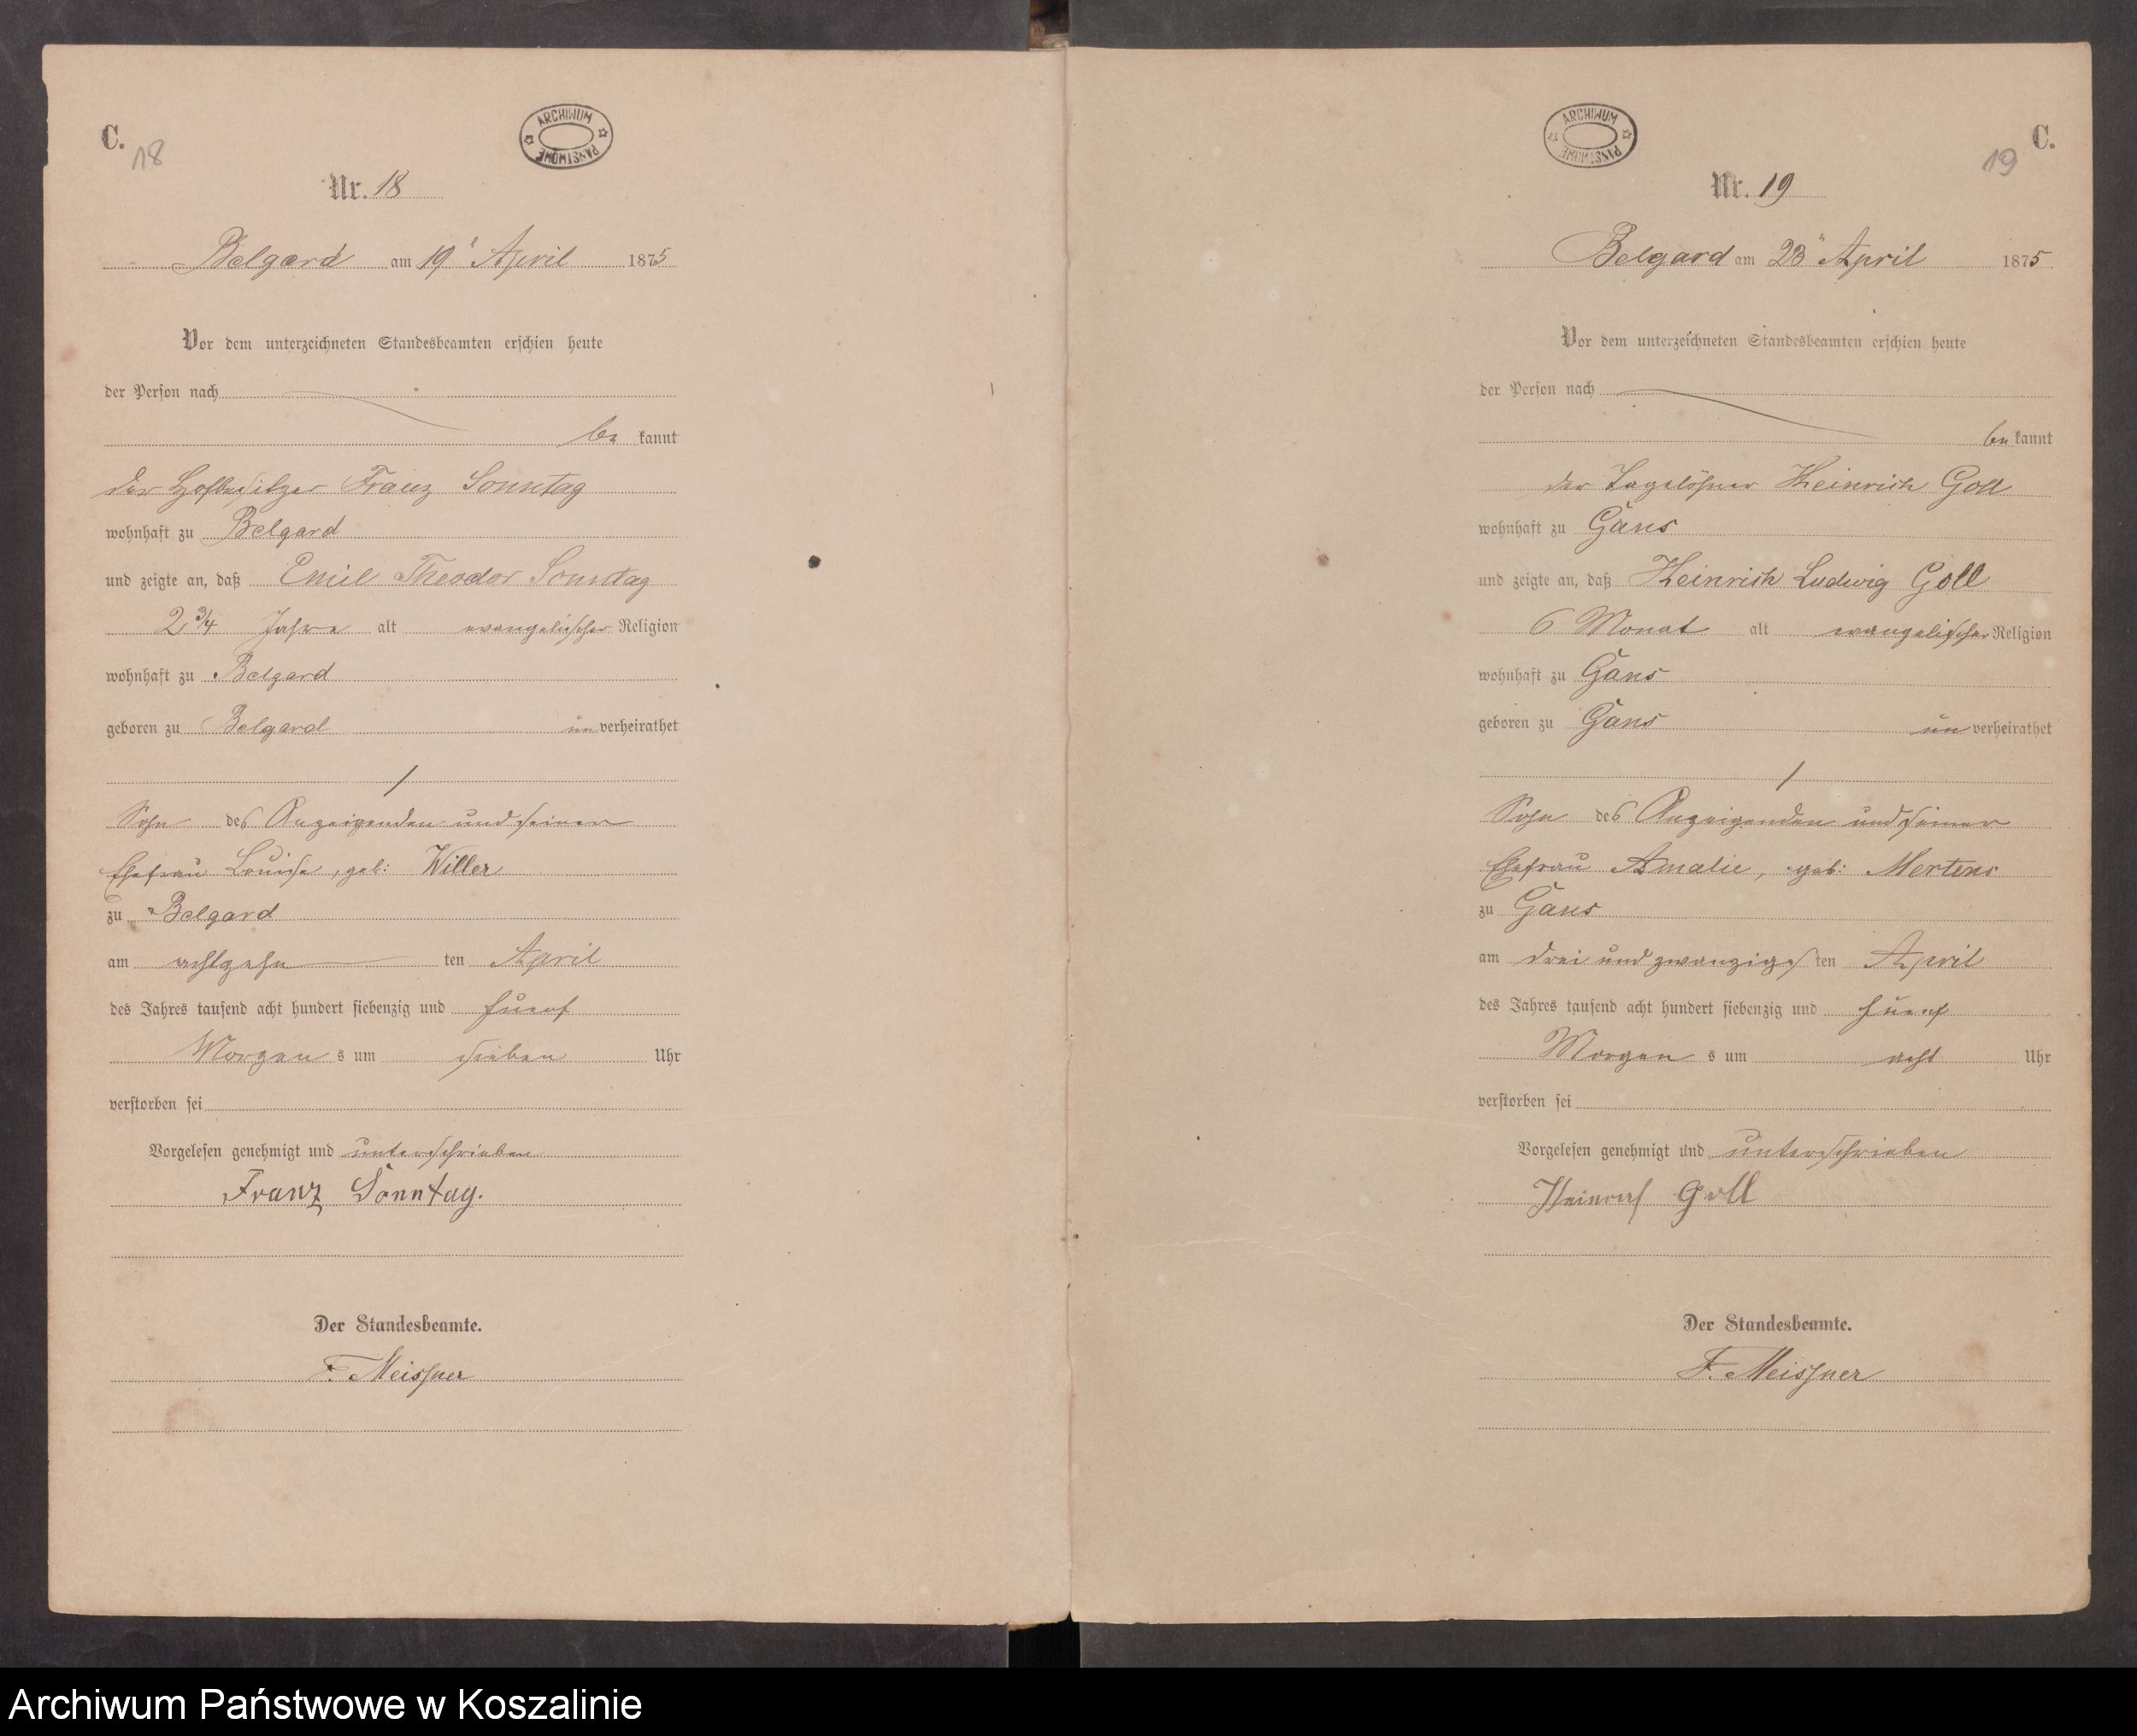 C.
18
ARCHIWUM PAŃSTWOWE
Nr. 18
Belgard am 19' April 1875
Vor dem unterzeichneten Standesbeamten erschien heute
der Person nach
be kannt
der Hofbesitzer Franz Sonntag
wohnhaft zu Belgard
und zeigte an, daß Emil Theodor Sonntag
2 3/4 Jahre alt evangelischer Religion
wohnhaft zu Belgard
geboren zu Belgard un verheirathet
/
Sohn des Anzeigenden und seiner
Ehefrau Louise, geb: Willer
zu Belgard
am achtzehn ten April
des Jahres tausend acht hundert siebenzig und fuenf
Morgen s um sieben Uhr
verstorben sei
Vorgelesen genehmigt und unterschrieben
Franz Sonntag.
Der Standesbeamte.
F. Meissner
ARCHIWUM PAŃSTWOWE
C.
19
Nr. 19
Belgard am 23" April 1875
Vor dem unterzeichneten Standesbeamten erschien heute
der Person nach
be kannt
der Tagelöhner Heinrich Goll
wohnhaft zu Gans
und zeigte an, daß Heinrich Ludwig Goll
6 Monat alt evangelischer Religion
wohnhaft zu Gans
geboren zu Gans un verheirathet
/
Sohn des Anzeigenden und seiner
Ehefrau Amalie, geb: Mertens
zu Gans
am drei und zwanzigs ten April
des Jahres tausend acht hundert siebenzig und fuenf
Morgen s um acht Uhr
verstorben sei
Vorgelesen genehmigt und unterschrieben
Heinrich Goll
Der Standesbeamte.
F. Meissner
Archiwum Państwowe w Koszalinie